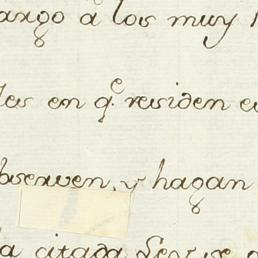 argo a los muy
les en q.e residen e
bserven, y hagan
la citada Ley, se